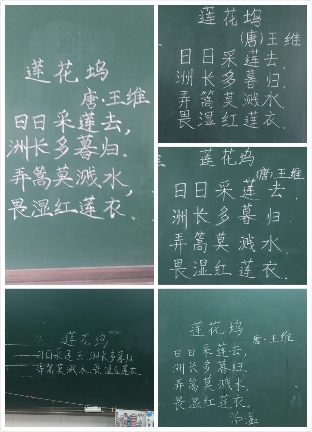 莲花坞
唐·王维
日日采莲去，
洲长多暮归。
弄篙莫溅水，
畏湿红莲衣。
莲花坞
(唐)王维
日日采莲去，
洲长多暮归．
弄篙莫溅水．
畏湿红莲衣．
莲花坞
(唐)王维
日日采莲去．
洲长多暮归
弄篙莫溅水．
畏湿红莲衣．
莲花坞
日日采莲去 洲长多暮归
弄篙莫溅水 畏湿红莲衣
莲花坞
唐·王维
日日采莲去，
洲长多暮归。
弄篙莫溅水，
畏湿红莲衣。